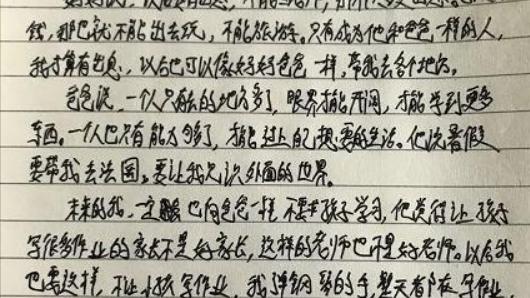 钱,那也就不能出去玩,不能旅游。只有成为他和爸爸一样的人,
我才算有出息,以后也可以像好好爸爸一样,带我去各个地方。
爸爸说,一个人只有去的地方多了,眼界才能开阔,才能学到更多
东西。一个人也只有能力够了,才能过上自己想要的生活。他说暑假
要带我去法国,要让我见识外面的世界。
未来的我,一定也向爸爸一样不要求孩子学习,他觉得让孩子
写很多作业的家长不是好家长,这样的老师也不是好老师。以后我
也要这样,不让小孩写作业,我弹钢琴的手,整天都在写作业,